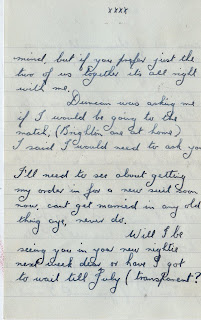 xxxx
mind, but if you prefer just the
two of us together its all right
with me.
Duncan was asking me
if I would be going to the
match, (Brighton are at home)
I said I would need to ask you
I'll need to see about getting
my order in for a new suit soon
now, cant get married in any old
thing aye, never do.
Will I be
seeing you in your new nightie
next week dear or have I got
to wait till July (transparent?